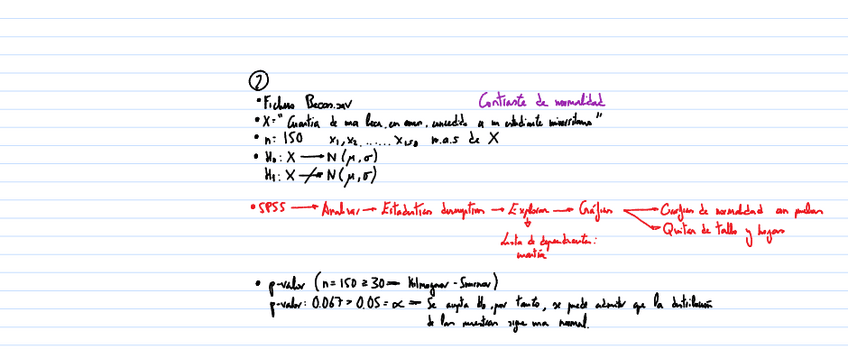 ②
• Fichero Becas.sav
Contraste de normalidad
• X = "Cuantía de una beca, en euros, concedida a un estudiante universitario"
• n: 150 x₁, x₂, ...... x₁₅₀ m.a.s de X
• H₀: X → N(μ,σ)
H₁: X ↛ N(μ,σ)
• SPSS → Analizar → Estadísticos descriptivos → Explorar → Gráficos → Gráficos de normalidad con pruebas
→ Quitar de tallo y hojas
Lista de dependientes:
cuantía
• p-valor (n = 150 ≥ 30 → Kolmogorov - Smirnov)
p-valor: 0.067 > 0.05 = α → Se acepta H₀, por tanto, se puede admitir que la distribución
de las cuantías sigue una normal.